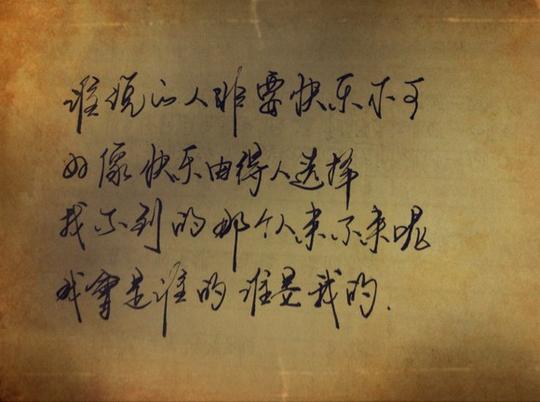 谁说的人非要快乐不可
好像快乐由得人选择
找不到的那个人来不来呢
我会是谁的谁是我的.